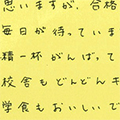 思いますが、合格
毎日が待っていま
精一杯がんばって
校舎もどんどんキ
学食もおいしいで